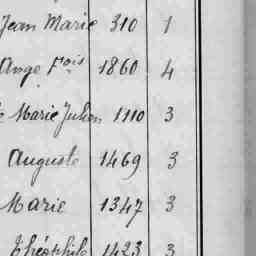 Jean Marie 310 1
Ange Fois 1860 4
Marie Julien 1110 3
Auguste 1469 3
Marie 1347 3
Théophile 1423 3